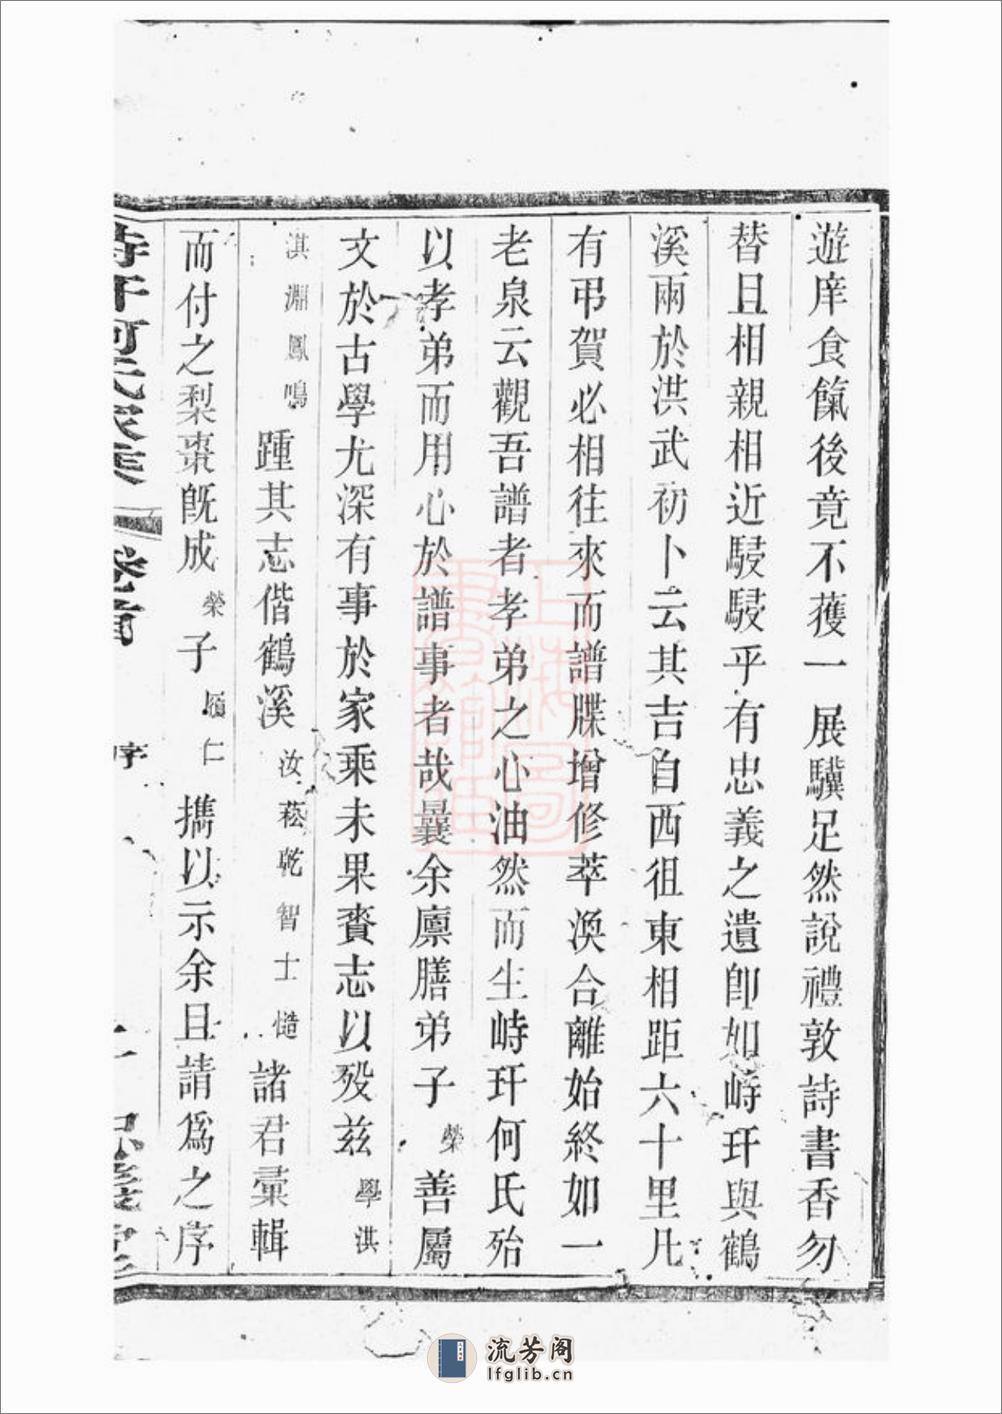 遊庠食餼後竟不獲一展驥足然說禮敦詩書香勿
替且相親相近駸駸乎有忠義之遺卽如峙玕與鶴
溪兩於洪武初卜云其吉自西徂東相距六十里凡
有弔賀必相往來而譜牒增修萃渙合離始終如一
老泉云觀吾譜者孝弟之心油然而生峙玕何氏殆
以孝弟而用心於譜事者哉曩余廪膳弟子榮善屬
文於古學尤深有事於家乘未果賫志以殁兹學淇
淇淵鳳鳴踵其志偕鶴溪汝菘乾智士慥諸君彙輯
而付之梨棗旣成榮子履仁攜以示余且請爲之序
峙玕何氏家乘 卷首 序
上海圖書館藏
流芳阁
lfglib.cn